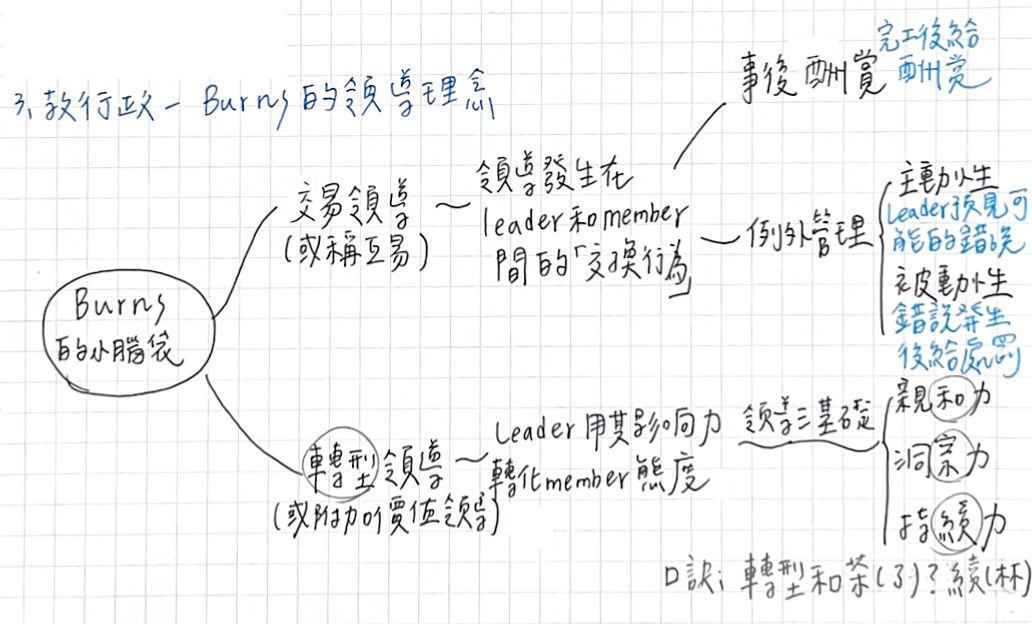 3. 教行政－Burns的領導理念
Burns
的小腦袋
交易領導
(或稱互易)
領導發生在
leader和member
間的「交換行為」
事後酬賞
完工後給
酬賞
例外管理
主動性
Leader預見可
能的錯誤
被動性
錯誤發生
後給處罰
轉型領導
(或附加價值領導)
Leader用其影响力
轉化member態度
領導三基礎
親和力
洞察力
持續力
口訣: 轉型和茶(了)?續(杯)